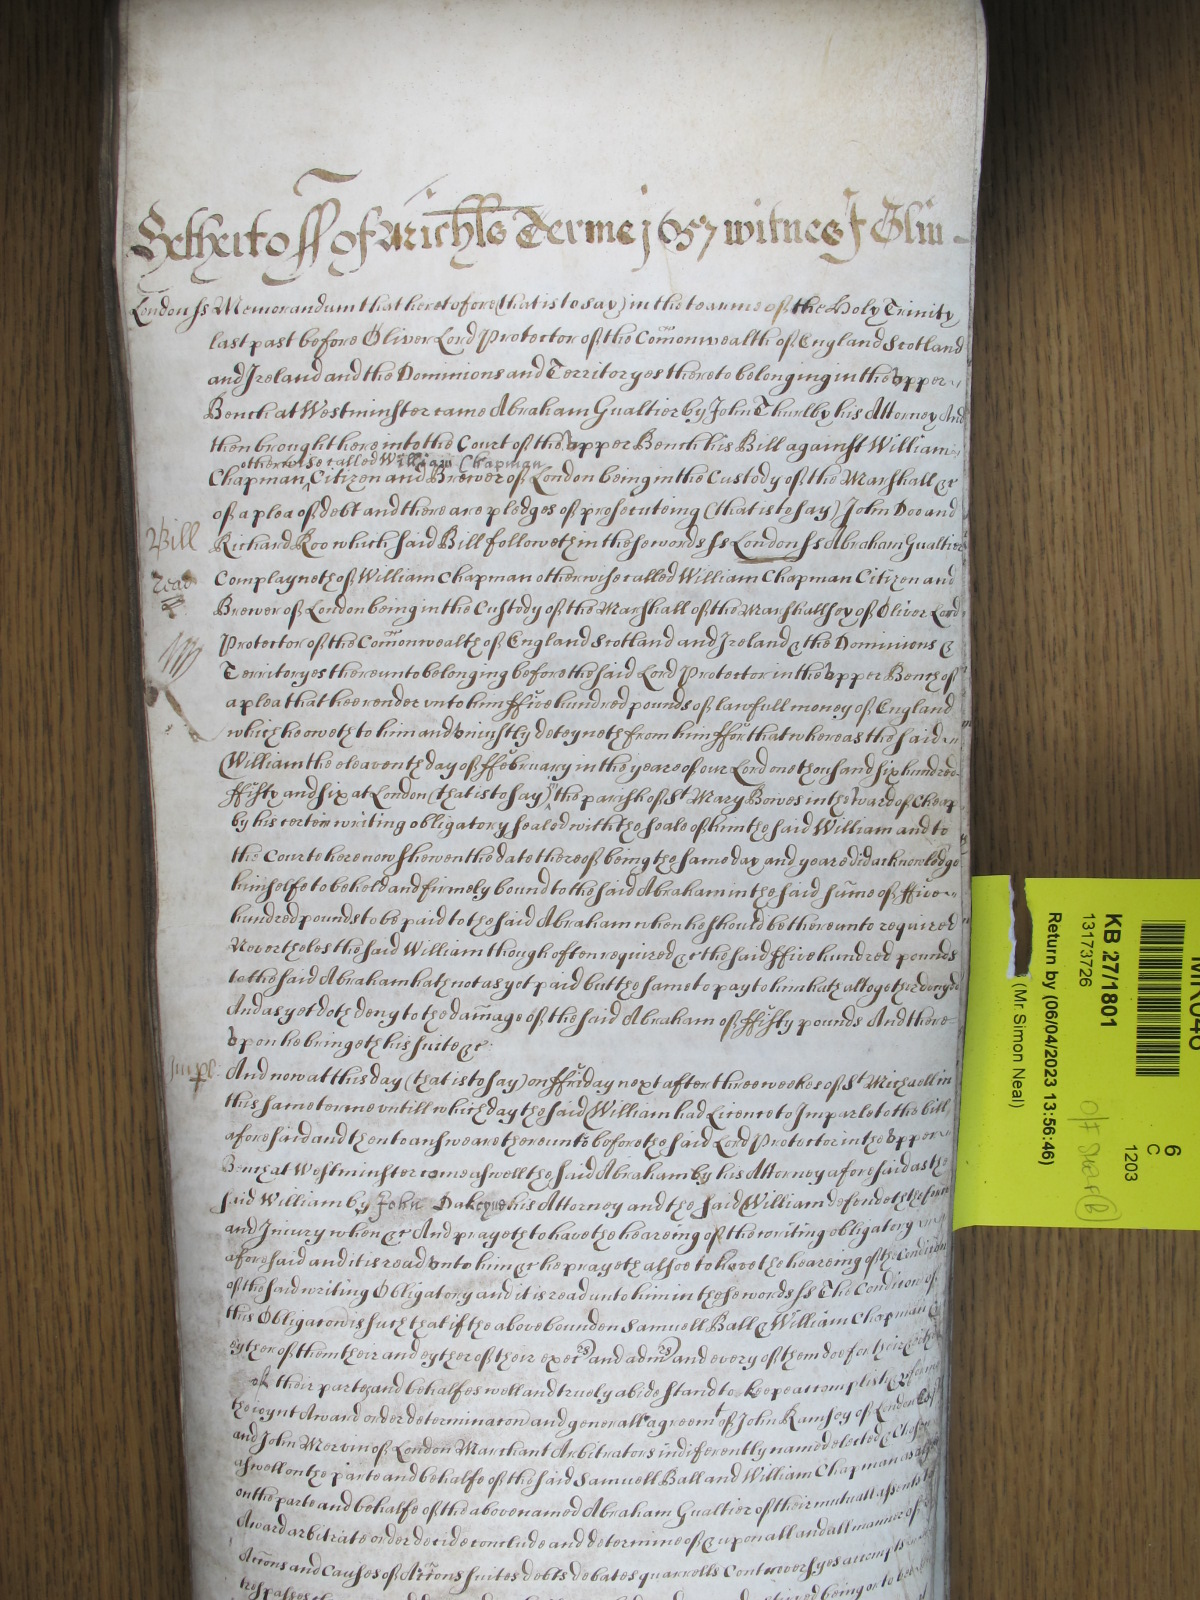 Hetherto ff of Michls Terme j657 witnes J Glin
London ss Memorandum that heretofore (that is to say) in the tearme of the Holy Trinity
last past before Oliver Lord Protector of the Comonwealth of England Scotland
and Ireland and the Dominions and Territoryes thereto belonging in the vpper
Bench at Westminster came Abraham Gualtier by John Thurlby his Attorney And
then brought here into the Court of the vpper Bench his Bill against William
otherwise called William Chapman
Chapman Citizen and Brewer of London being in the Custody of the Marshall &c
of a plea of debt and there are pledges of prosecuteing (that is to say) John Doo and
Bill
Richard Roo which said Bill followeth in these words ss London ss Abraham Gualtier
Complayneth of William Chapman otherwise called William Chapman Citizen and
Brewer of London being in the Custody of the Marshall of the Marshallsey of Oliver Lord
Protector of the Comonwealth of England Scotland and Ireland & the Dominions &
Territoryes thereunto belonging before the said Lord Protector in the vpper Bench of
a plea that hee render vnto him ffive hundred pounds of lawfull money of England
which he oweth to him and vniustly deteyneth from him ffor that whereas the said
William the eleaventh day of ffebruary in the yeare of our Lord one thousand six hundred
ffifty and six at London (that is to say) in the parish of St Mary Bowes in the Ward of Cheap
by his certein writing obligatory sealed with the seale of him the said William and to
the Courte here now shewen the date thereof being the same day and yeare did acknowledge
himselfe to be held and firmely bound to the said Abraham in the said sume of ffive
hundred pounds to be paid to the said Abraham when he should be thereunto required
Nevertheles the said William though often required &c the said ffive hundred pounds
to the said Abraham hath not as yet paid but the same to pay to him hath altogether denyed
And as yet doth deny to the damage of the said Abraham of ffifty pounds And there
vpon he bringeth his suite &c
Impl:
And now at this day (that is to say) on ffriday next after three weekes of St Michaell in
this same terme untill which day the said William had Licence to Imparle to the bill
aforesaid and then to answeare thereunto before the said Lord Protector in the vpper
Bench at Westminster come aswell the said Abraham by his Attorney aforesaid as the
said William by John Dakeyne his Attorney and the said William defendeth the
and Iniury when &c And prayeth to have the heareing of the writing obligatory
aforesaid and it is read vnto him &c he prayeth alsoe to have the heareing of the Condicon
of the said writing Obligatory and it is read unto him in these words ss The Condicon of
this Obligacon is such that if the above bounden Samuell Ball & William Chapman
eyther of them their and eyther of their execrs and admrs and every of them doe for their
of their parts and behalfes well and truely abide stand to keepe accomplish
the ioynt Award order determinacon and generall agreemt of John Ramsey of London
and John Mervin of London Marchant Arbitrators indifferently named elected &
aswell on the parte and behalfe of the said Samuell Ball and William Chapman as
on the parte and behalfe of the abovenamed Abraham Gualtier of their mutuall assents
Award arbitrate order decide conclude and determine of & upon all and all manner of
Accons and Causes of Accons suites debts debates quarrells Controversyes accompts
trespasses
KB 27/1801
13173726
Return by (06/04/2023 13:56:46)
(Mr. Simon Neal)
6
C
1203